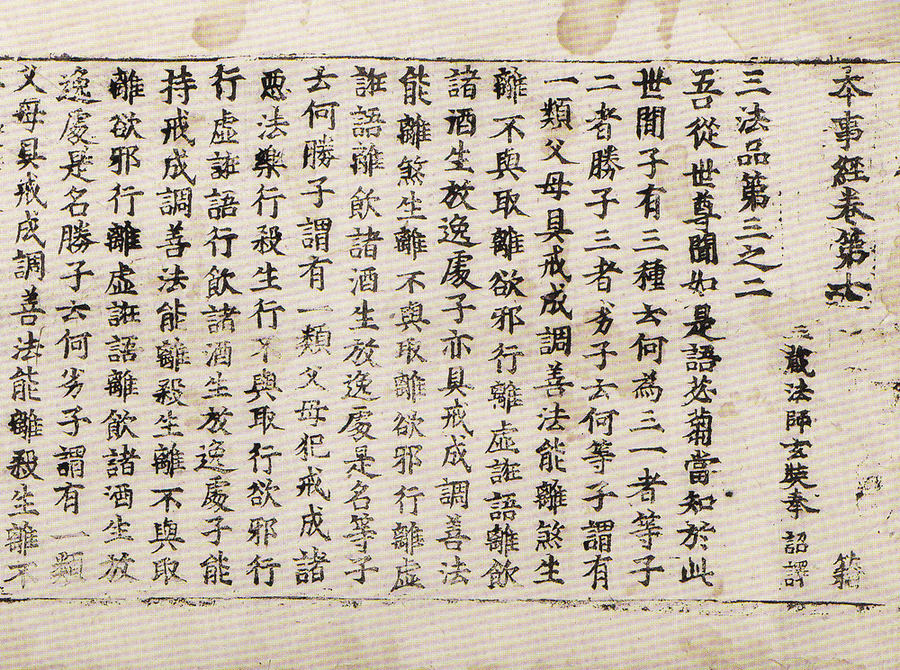 本事經卷第六 籍
三藏法師玄奘奉 詔譯
三法品第三之二
吾從世尊聞如是語苾蒭當知於此
世間子有三種云何為三一者等子
二者勝子三者劣子云何等子謂有
一類父母具戒成調善法能離煞生
離不與取離欲邪行離虛誑語離飲
諸酒生放逸處子亦具戒成調善法
能離煞生離不與取離欲邪行離虛
誑語離飲諸酒生放逸處是名等子
云何勝子謂有一類父母犯戒成諸
惡法樂行殺生行不與取行欲邪行
行虛誑語行飲諸酒生放逸處子能
持戒成調善法能離殺生離不與取
離欲邪行離虛誑語離飲諸酒生放
逸處是名勝子云何劣子謂有一類
父母具戒成調善法能離殺生離不